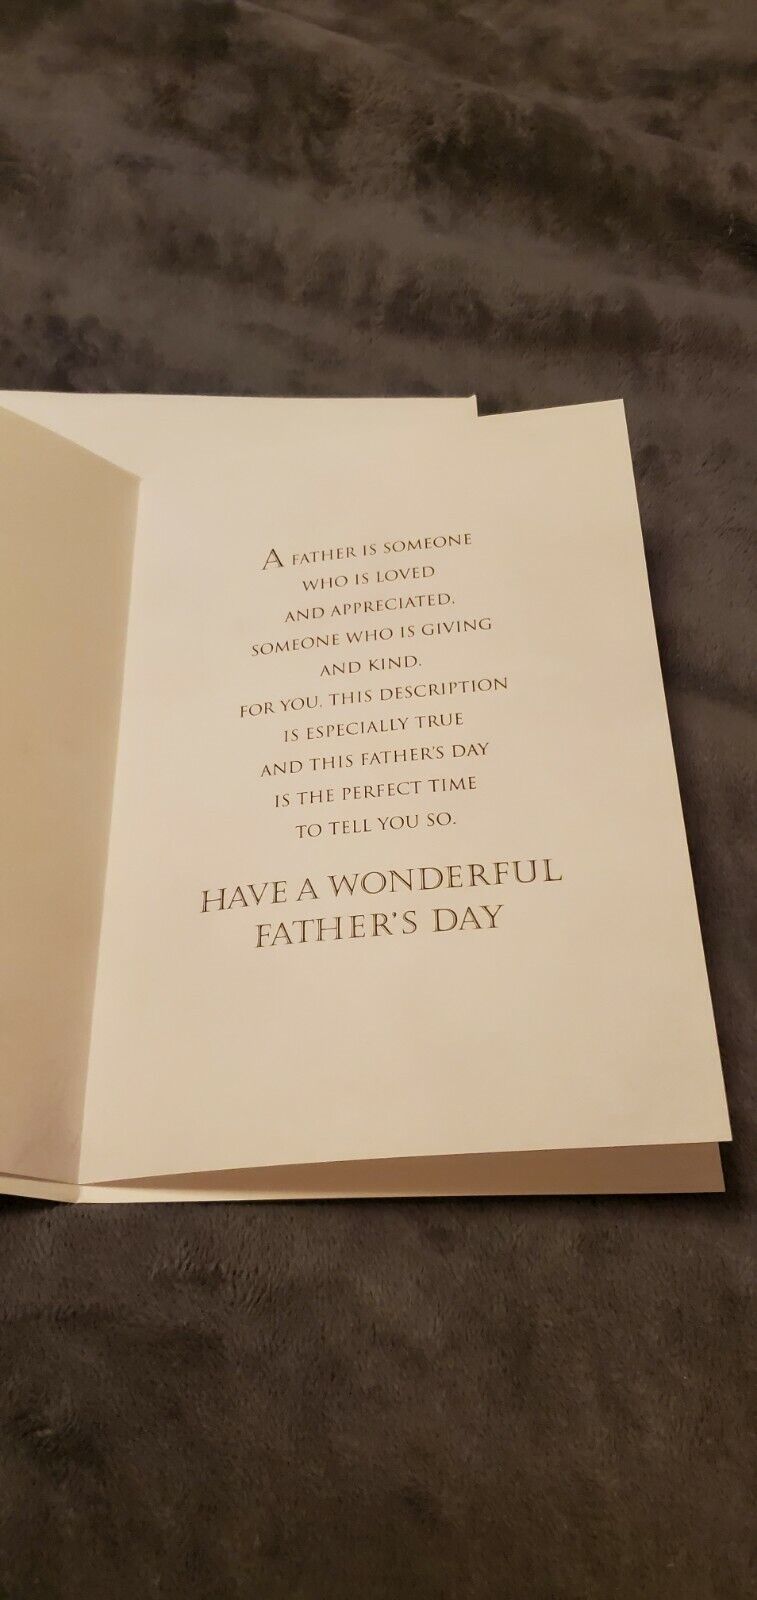 A FATHER IS SOMEONE
WHO IS LOVED
AND APPRECIATED,
SOMEONE WHO IS GIVING
AND KIND.
FOR YOU, THIS DESCRIPTION
IS ESPECIALLY TRUE
AND THIS FATHER'S DAY
IS THE PERFECT TIME
TO TELL YOU SO.
HAVE A WONDERFUL
FATHER'S DAY